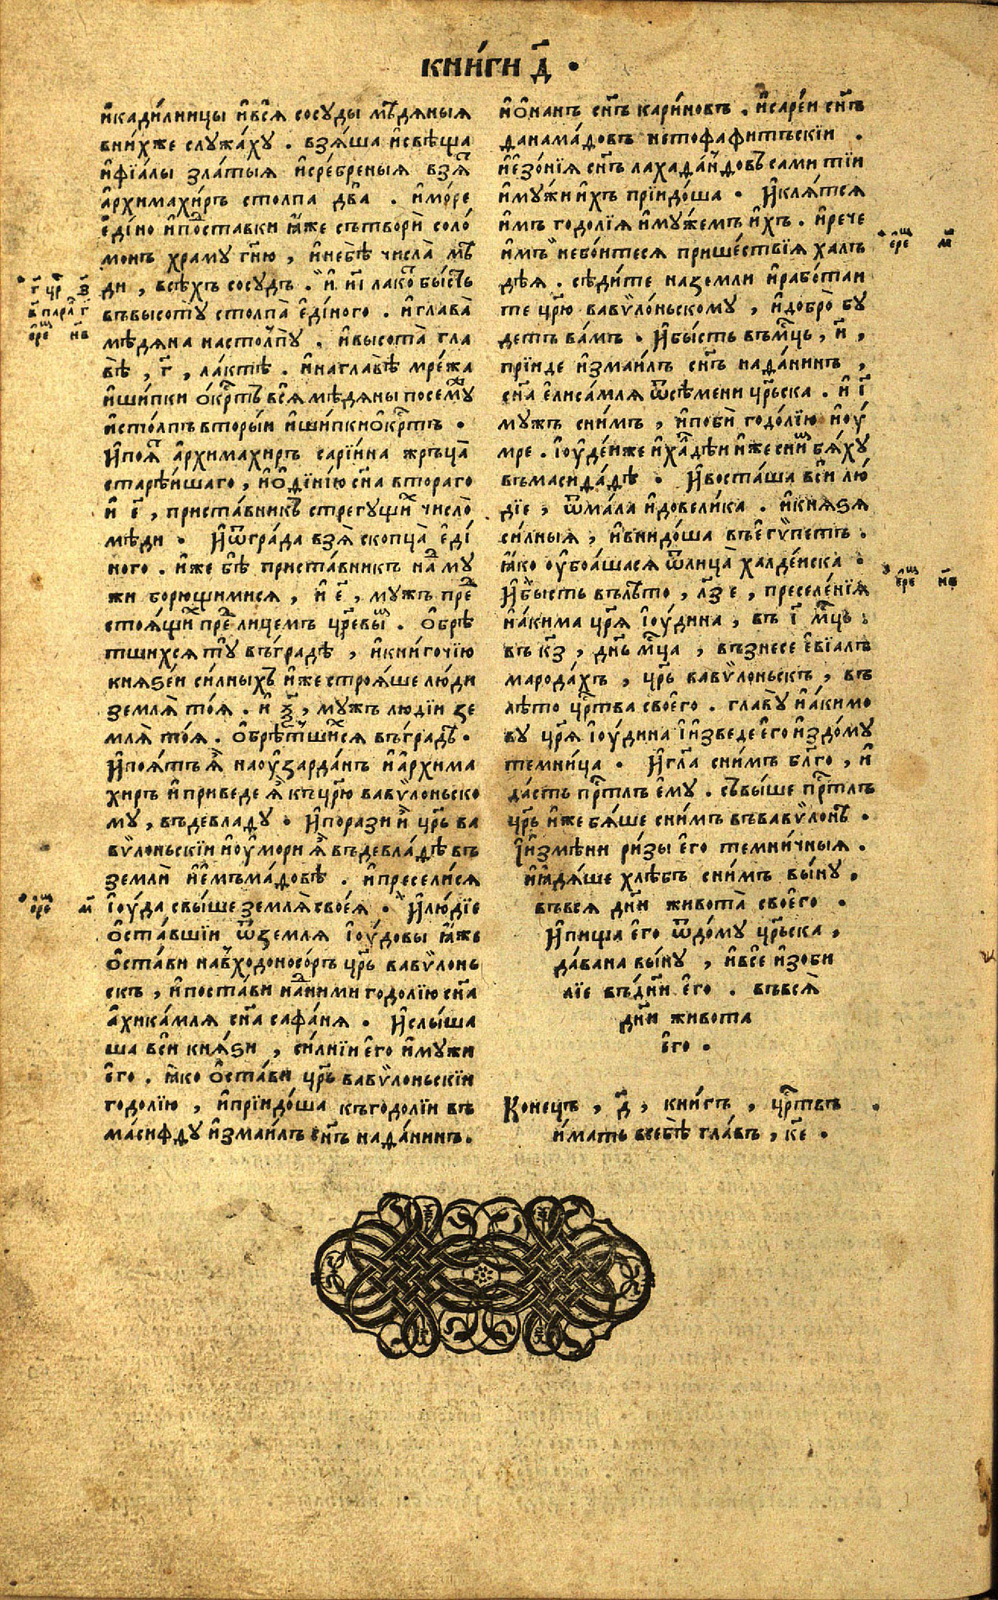 КНИ́ГИ Д҃ .
и҆кади́лницы и҆всѧ̀ сосуды мѣ́дяныя
вни́хже служа́ху . взя́ша и҆свѣща
и҆фїа́лы зла́тыя и҆сре́бреныя взя
а҆рхимахи́ръ столпа два . и҆мо́ре
е҆ди́но и҆поставки ꙗ҆́же сътворѝ соло́
монъ храму гн҃ю , и҆небѣ̀ числа̀ мѣ́
ди , всѣ́хъ сосудъ . и҆ и҃і лако́ бы́сть
въвысоту̀ столпа̀ е҆ди́ного . и҆глава̀
мѣ́дяна настолпу̀ . и҆высота̀ гла
вѣ̀ , г҃ , ла́ктѣ . и҆наглавѣ̀ мре́жа
и҆ши́пки о҆́крⷭ҇тъ всѧ̀ мѣ́дяны посему
и҆сто́лпъ вторы́и и҆ши́пки о҆́крⷭ҇тъ .
И҆поя́ а҆рхимахиръ сарїи́на жръца̀
старѣ́ишаго , и҆ѻ҆дїи́нїю сн҃а втораго
и҆ г҃ , приста́вникъ стрегущи́ число̀
мѣ́ди . И҆ѿгра́да взя̀ скопца̀ е҆ди́
ного . иже бѣ̀ приста́вникъ на му
жи борющимися , и҆ е҃ , мужъ пре
стоя́щи пре лицемъ цр҃евы . О҆брѣ́
тшихся ту въградѣ , и҆кни́гочїю
князе́и си́лныхъ и҆́же строя́ше лю́ди
земля̀ тоя́ . и҆ ѯ҃ , мужъ людїи зе
мля̀ тоя́ . о҆брѣтшихся въградѣ .
И҆поя́тъ я҆̀ наоузарда́нъ и҆а҆рхима
хиръ и҆приведе я҆̀ къцр҃ю вавѷлоньско
му , въдевладу . И҆порази и҆̀ цр҃ь ва
вѷлоньскїи и҆оу҆мори я҆̀ въдевла́дѣ въ
землѝ и҆е҆мъма́довѣ . и҆пресели́ся
І҆ои́да свы́ше земля̀ своея̀ . И҆лю́дїе
о҆ста́вшїи ѿземля І҆оу́довы ꙗ҆́же
о҆ста́ви навꙋ́ходоносо́ръ цр҃ь вавѷлонь
скъ , и҆поста́ви на ними годолі́ю сн҃а
а҆хика́мля сн҃а сафа́ня . И҆слы́ша
ша вси князи , си́лнїи е҆го и҆мужи
е҆го . ꙗ҆́ко о҆ста́ви цр҃ь вавѷлоньскїи
годолі́ю , и҆прїидо́ша къгодолі́и въ
ма́сифду и҆змаи́лъ сн҃ъ нада́нинъ .
г҃ цр҃ з҃
в҃ пара г҃
е҆ре нв҃
е҆ре м҃
и҆ѻ҆на́нъ сн҃ъ кари́новъ . и҆саре́и сн҃ъ
данама́довъ нетофафи́тъскїи .
и҆е҆зо́нїя сн҃ъ лахада́ндовъ сами тїи
и҆му́жи и҆хъ прїидо́ша . И҆кля́тся
и҆мъ годолі́я и҆му́жемъ и҆́хъ . и҆рече
и҆мъ небо́итеся прише́ствїя халъ
дѣ́я . сѣди́те наземли и҆рабо́таи
те цр҃ю вавѷло́ньскому , и҆добро̀ бу
детъ ва́мъ . И҆бы́сть въмц҃ь , з҃ ,
прїиде и҆змаи́лъ сн҃ъ нада́нинъ ,
сн҃а е҆лиса́мля ѿсѣмени цр҃ьска . и҆ і҃
мужъ сни́мъ , и҆поби̂ годолі́ю и҆оу҆́
мре . І҆оу҆де́иже и҆халде́и и҆́же сни бя́ху
въмасида́дѣ . И҆воста́ша вси лю́
дїе , ѿма́ла и҆довели́ка . и҆князя
си́лныя , и҆внидо́ша въе҆гѵ́петъ .
ꙗ҆́ко оу҆боя́шася ѿлица̀ халде́иска .
И҆бысть въ лѣ́то , лз҃ е , преселе́нїя
и҆а́кима цр҃я І҆оу́дина , въ і҃ мц҃ь .
въ кз҃ , дн҃ь мц҃а , възнесе е҆вїа́лъ
марода́хъ , цр҃ь вавѷло́ньскъ , въ
лѣ́то цр҃тва своего . главу и҆акимо
ву цр҃я І҆оу́дина І҆и҆зведе е҆го и҆здо́му
темни́ца . И҆гл҃а сни́мъ бл҃го , и҆
да́сть прⷭ҇тлъ е҆му . свы́ше прⷭ҇тлъ
цр҃ь и҆же бя́ше сни́мъ въвавѷло́нѣ .
І҆и҆змѣ́ни ри́зы е҆го темни́чныя .
и҆ꙗдя́ше хлѣ́бъ сни́мъ вы́ну ,
въвся дн҃и живота̀ своего .
И҆пища е҆го ѿдо́му цр҃ьска ,
дава́на вы́ну , и҆все и҆зоби
лїе въдн҃и е҆го . въвся̀
дн҃и живота
е҆го .
е҆ре м҃
е҆ре нв҃
Коне́цъ , д҃ , кни́гъ , цр҃твъ .
и҆́мать всебѣ̀ гла́въ , ке҃ .